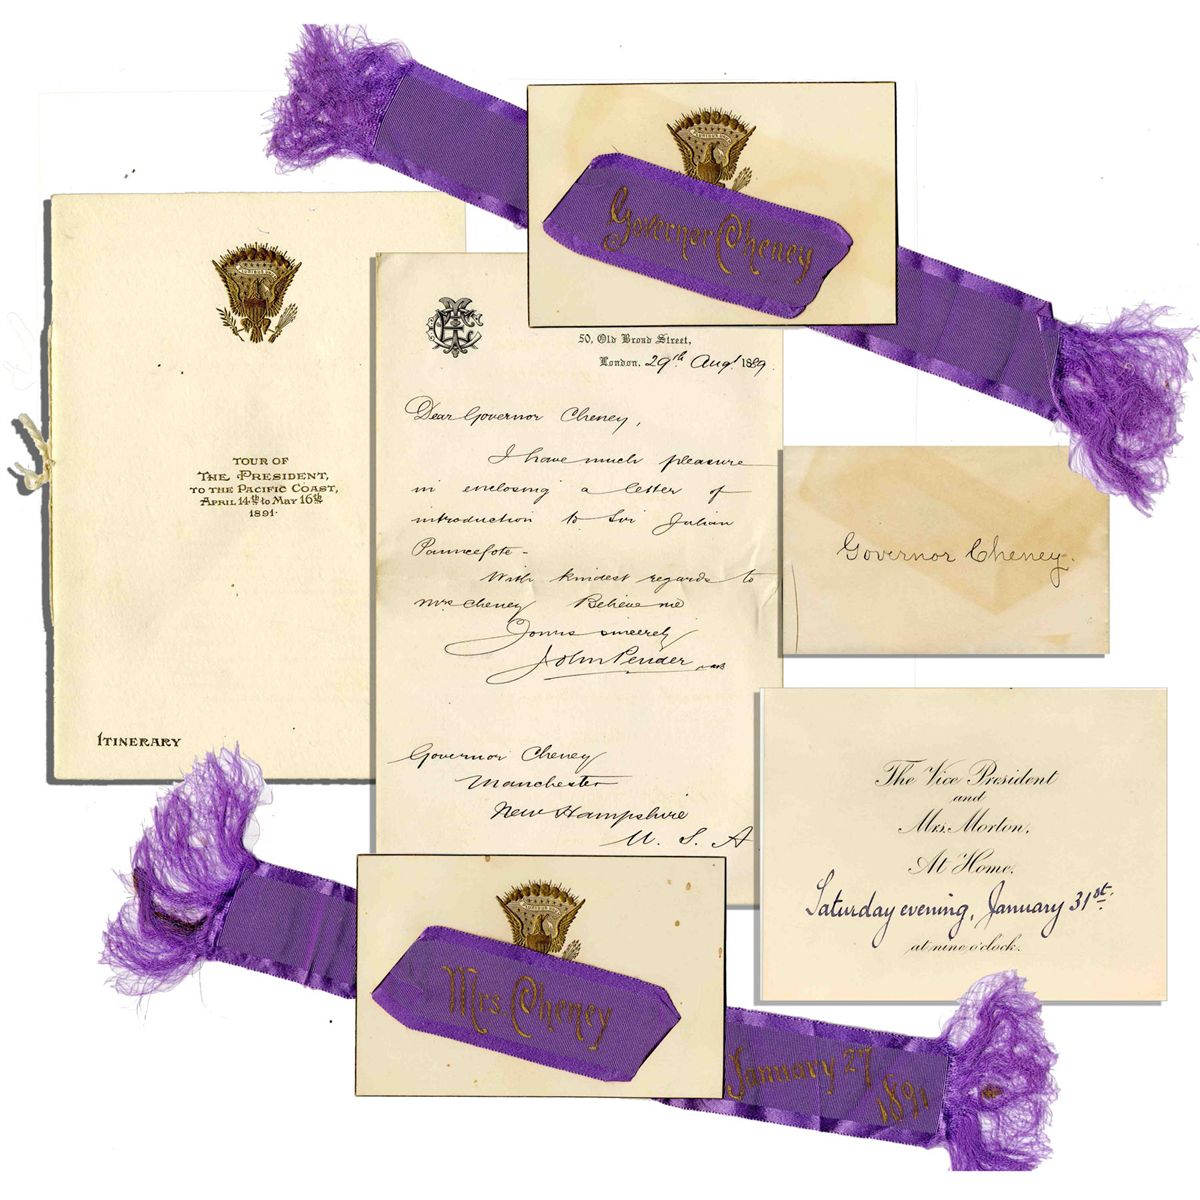 Governor Cheney
TOUR OF
THE PRESIDENT,
TO THE PACIFIC COAST,
APRIL 14th TO MAY 16th
1891.
ITINERARY
50, Old Broad Street,
London. 29th Augt 1889.
Dear Governor Cheney,
I have much pleasure
in enclosing a letter of
introduction to Sir Julian
Pauncefote-
With kindest regards to
Mrs Cheney Believe me
Yours sincerely
John Pender
Governor Cheney
Manchester
New Hampshire
U. S. A
Governor Cheney.
The Vice President
and
Mrs. Morton,
At Home,
Saturday evening, January 31st.
at nine o'clock.
Mrs. Cheney
January 27
1891